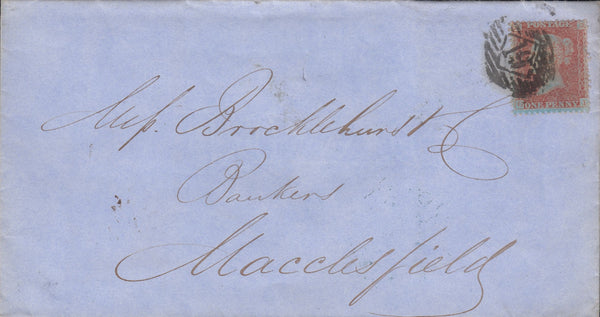 POSTAGE
ONE PENNY
Mess. Brocklehurst & C
Bankers
Macclesfield